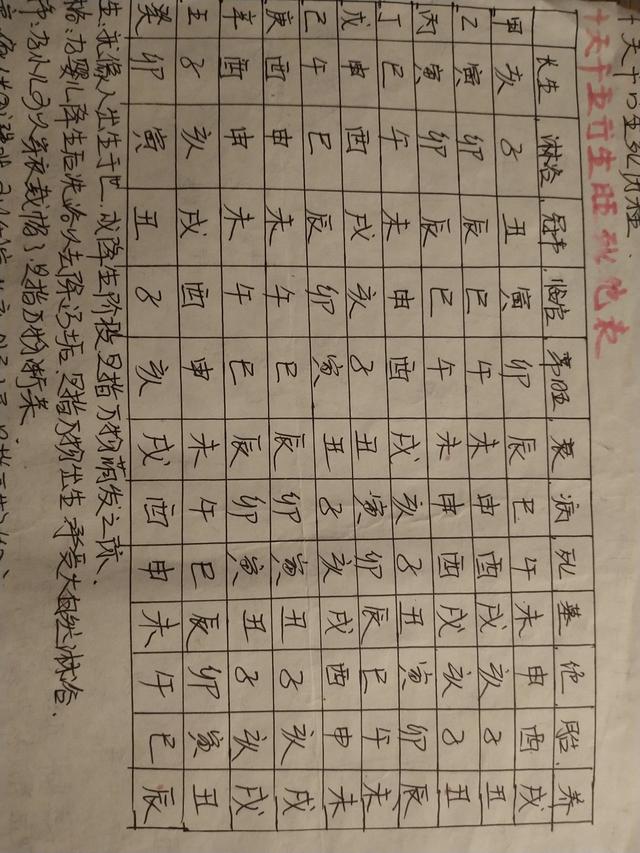 十天干的生死历程
十天干五行生旺死绝表
长生 淋浴 冠带 临官 帝旺 衰 病 死 墓 绝 胎 养
甲 亥 子 丑 寅 卯 辰 巳 午 未 申 酉 戌
乙 寅 卯 辰 巳 午 未 申 酉 戌 亥 子 丑
丙 寅 卯 辰 巳 午 未 申 酉 戌 亥 子 丑
丁 巳 午 未 申 酉 戌 亥 子 丑 寅 卯 辰
戊 申 酉 戌 亥 子 丑 寅 卯 辰 巳 午 未
己 午 巳 辰 卯 寅 丑 子 亥 戌 酉 申 未
庚 酉 申 未 午 巳 辰 卯 寅 丑 子 亥 戌
辛 酉 申 未 午 巳 辰 卯 寅 丑 子 亥 戌
壬 子 亥 戌 酉 申 未 午 巳 辰 卯 寅 丑
癸 卯 寅 丑 子 亥 戌 酉 申 未 午 巳 辰
生:就像人出生于世,或降生阶段是指万物萌发之际.
浴:为婴儿降生后洗浴以去除污垢.是指万物出生承受大自然淋浴.
带:为小儿可以穿衣戴帽了.是指万物渐荣